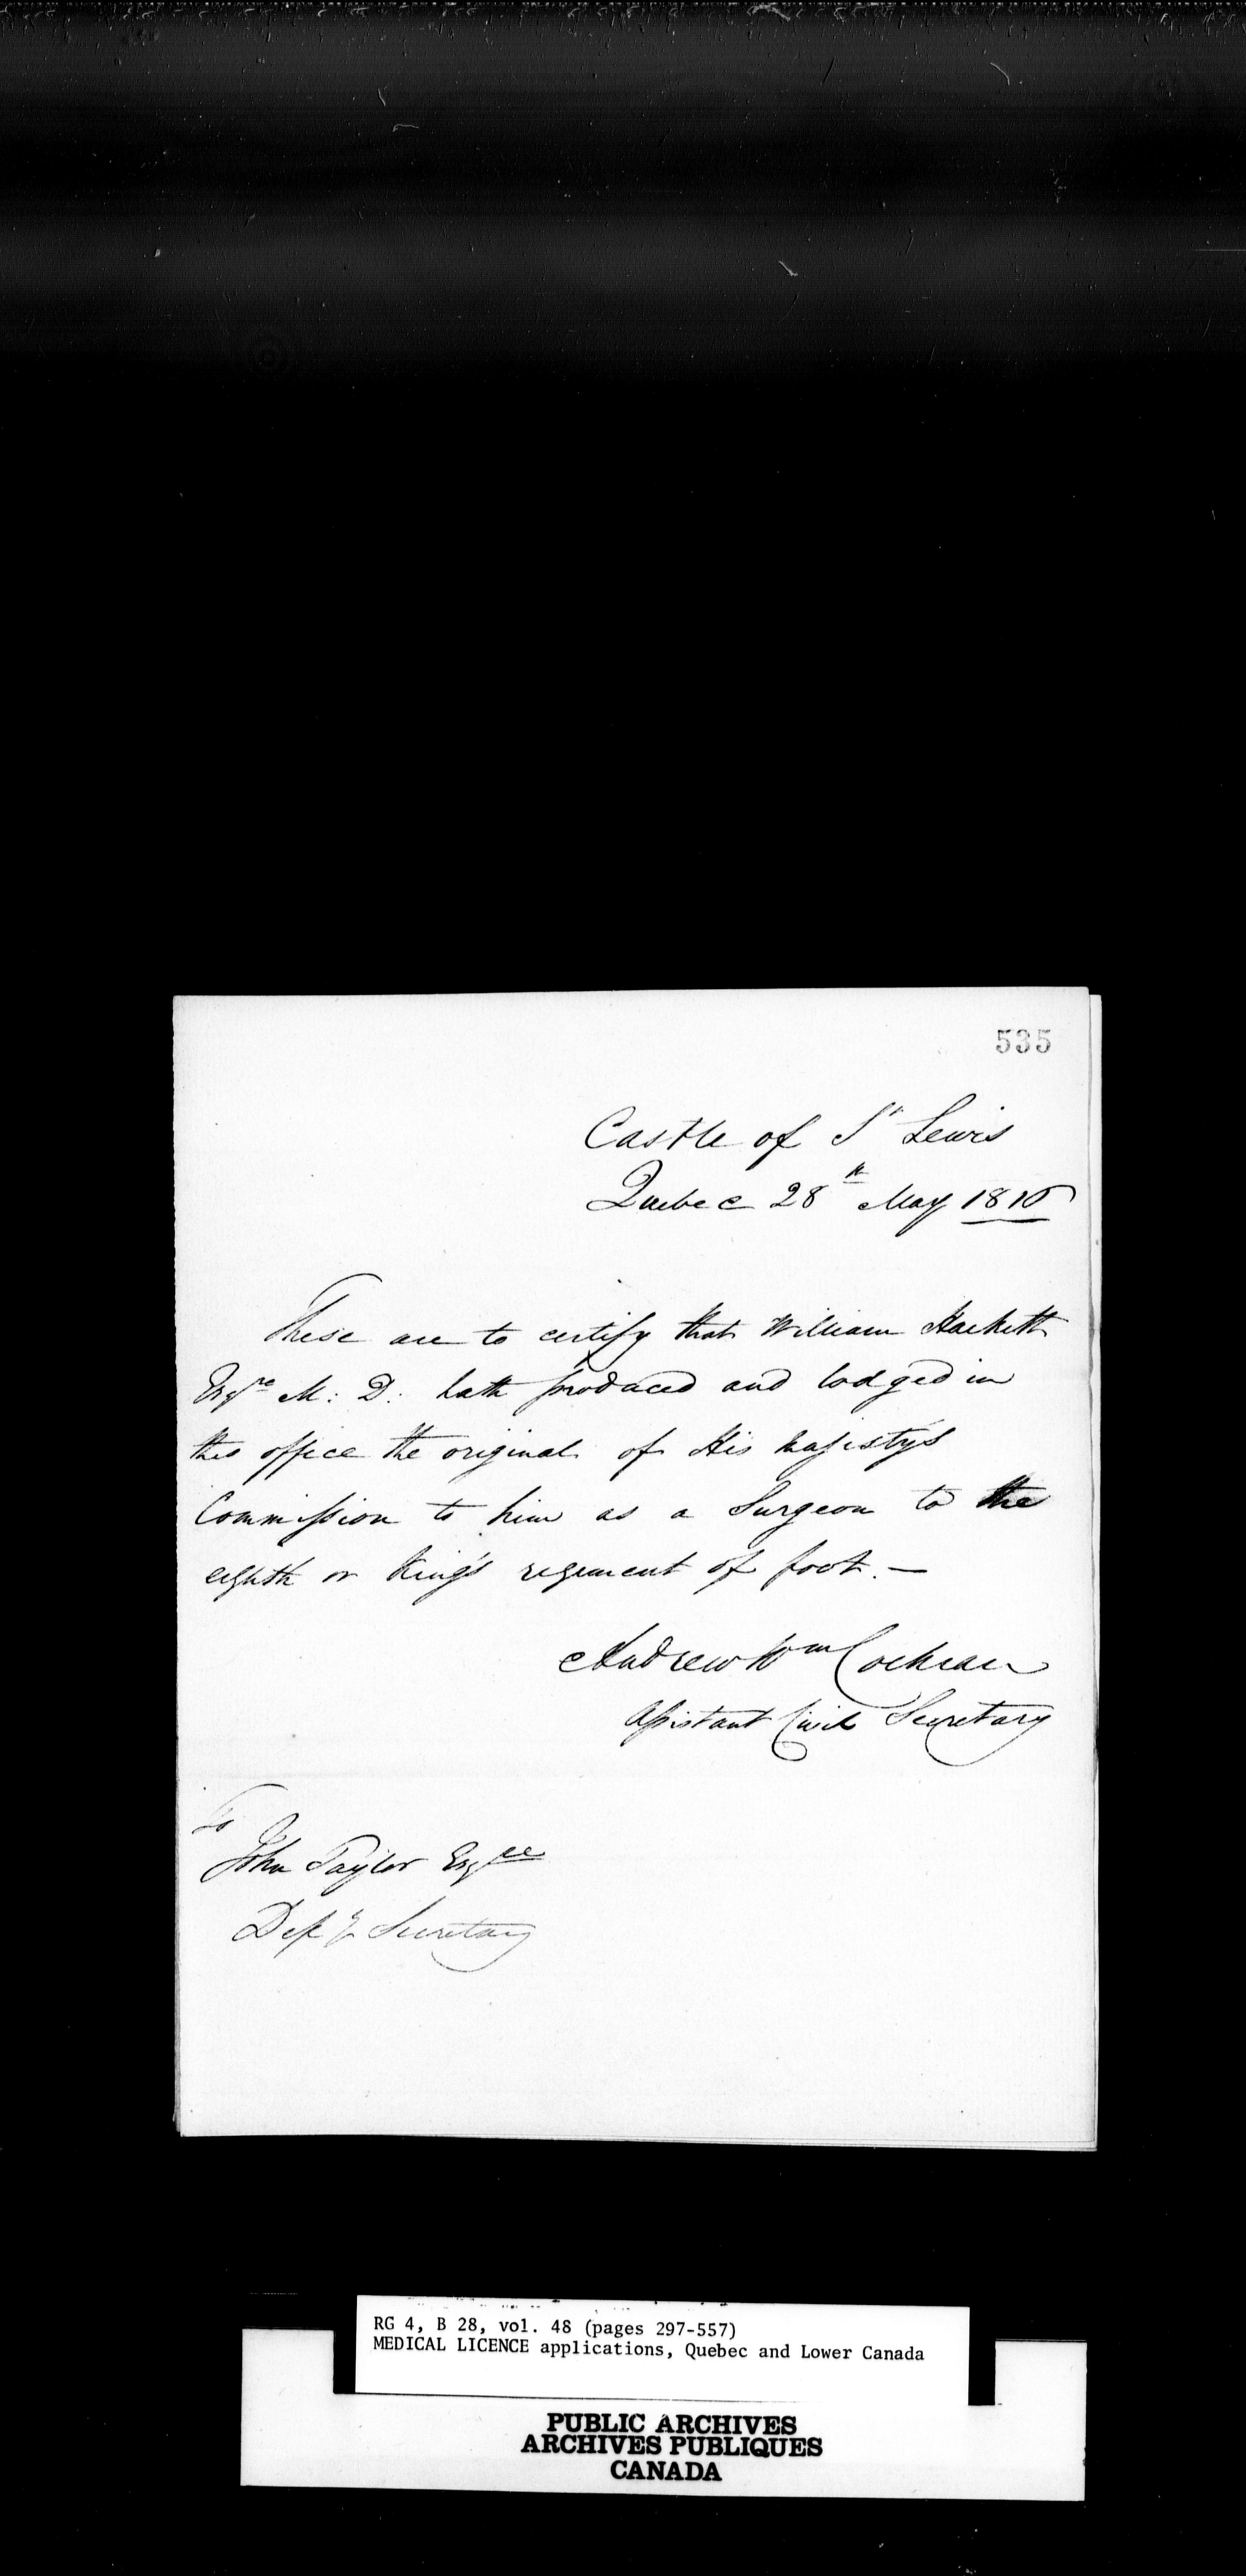 535
Castle of St Lewis
Quebec 28th May 1816
These are to certify that William Hackett
Esqre M: D: hath produced and lodged in
this office the original of His Majesty's
Commission to him as a Surgeon to the
eighth or King's regiment of foot. —
Andrew Wm Cochran
Assistant Civil Secretary
To
John Taylor Esqre
Depy Secretary
RG 4, B 28, vol. 48 (pages 297-557)
MEDICAL LICENCE applications, Quebec and Lower Canada
PUBLIC ARCHIVES
ARCHIVES PUBLIQUES
CANADA